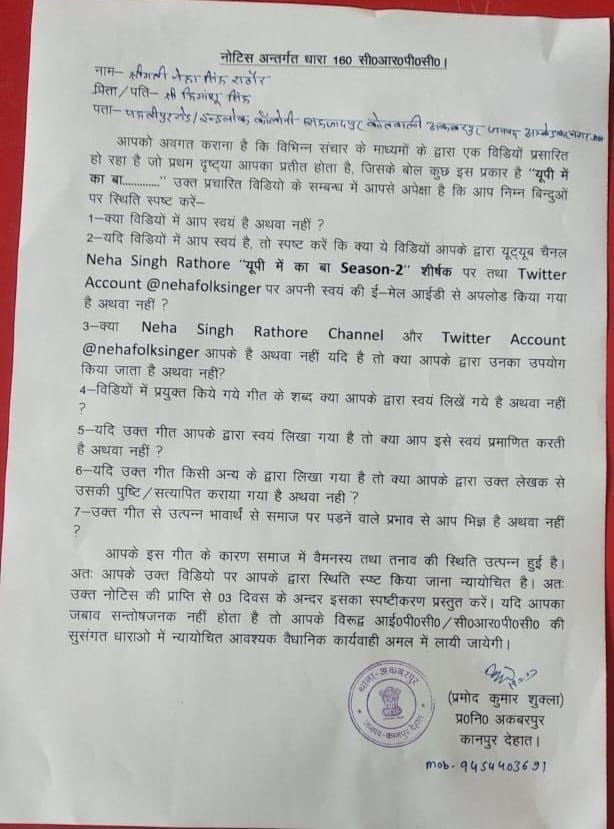 नोटिस अन्तर्गत धारा 160 सी0आर0पी0सी0।
नाम– श्रीमती नेहा सिंह राठौर
पिता/पति– श्री हिमांशु सिंह
पता– कॉलोनी कोतवाली अकबरपुर जनपद अम्बेडकरनगर
आपको अवगत कराना है कि विभिन्न संचार के माध्यमों के द्वारा एक विडियों प्रसारित
हो रहा है जो प्रथम दृष्टया आपका प्रतीत होता है, जिसके बोल कुछ इस प्रकार है "यूपी में
का बा............." उक्त प्रचारित विडियो के सम्बन्ध में आपसे अपेक्षा है कि आप निम्न बिन्दुओं
पर स्थिति स्पष्ट करें–
1–क्या विडियों में आप स्वयं है अथवा नहीं ?
2–यदि विडियों में आप स्वयं है, तो स्पष्ट करें कि क्या ये विडियों आपके द्वारा यूट्यूब चैनल
Neha Singh Rathore "यूपी में का बा Season-2" शीर्षक पर तथा Twitter
Account @nehafolksinger पर अपनी स्वयं की ई–मेल आईडी से अपलोड किया गया
है अथवा नहीं ?
3–क्या Neha Singh Rathore Channel और Twitter Account
@nehafolksinger आपके है अथवा नहीं यदि है तो क्या आपके द्वारा उनका उपयोग
किया जाता है अथवा नहीं?
4–विडियों में प्रयुक्त किये गये गीत के शब्द क्या आपके द्वारा स्वयं लिखें गये है अथवा नहीं
?
5–यदि उक्त गीत आपके द्वारा स्वयं लिखा गया है तो क्या आप इसे स्वयं प्रमाणित करती
है अथवा नहीं ?
6–यदि उक्त गीत किसी अन्य के द्वारा लिखा गया है तो क्या आपके द्वारा उक्त लेखक से
उसकी पुष्टि/सत्यापित कराया गया है अथवा नही ?
7–उक्त गीत से उत्पन्न भावार्थ से समाज पर पड़नें वाले प्रभाव से आप भिज्ञ है अथवा नहीं
?
आपके इस गीत के कारण समाज में वैमनस्य तथा तनाव की स्थिति उत्पन्न हुई है।
अतः आपके उक्त विडियो पर आपके द्वारा स्थिति स्पष्ट किया जाना न्यायोचित है। अतः
उक्त नोटिस की प्राप्ति से 03 दिवस के अन्दर इसका स्पष्टीकरण प्रस्तुत करें। यदि आपका
जबाव सन्तोषजनक नहीं होता है तो आपके विरूद्ध आई0पी0सी0/सी0आर0पी0सी0 की
सुसंगत धाराओ में न्यायोचित आवश्यक वैधानिक कार्यवाही अमल में लायी जायेगी।
थाना–अकबरपुर
जनपद–कानपुर देहात
(प्रमोद कुमार शुक्ला)
प्र0नि0 अकबरपुर
कानपुर देहात।
mob- 9454403691